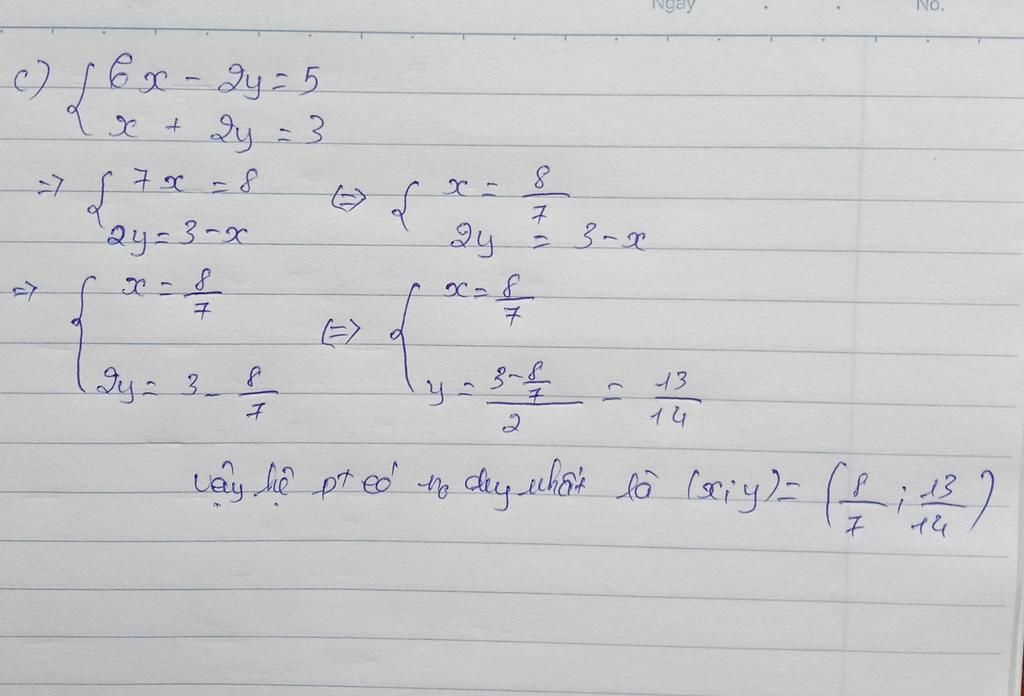 Ngày No.
c) { 6x - 2y = 5
x + 2y = 3
=> { 7x = 8 (=) { x = 8/7
2y = 3 - x 2y = 3 - x
=> { x = 8/7 (=> { x = 8/7
2y = 3 - 8/7 y = (3 - 8/7)/2 = 13/14
Vậy hệ pt có no duy nhất là (x; y) = (8/7; 13/14)